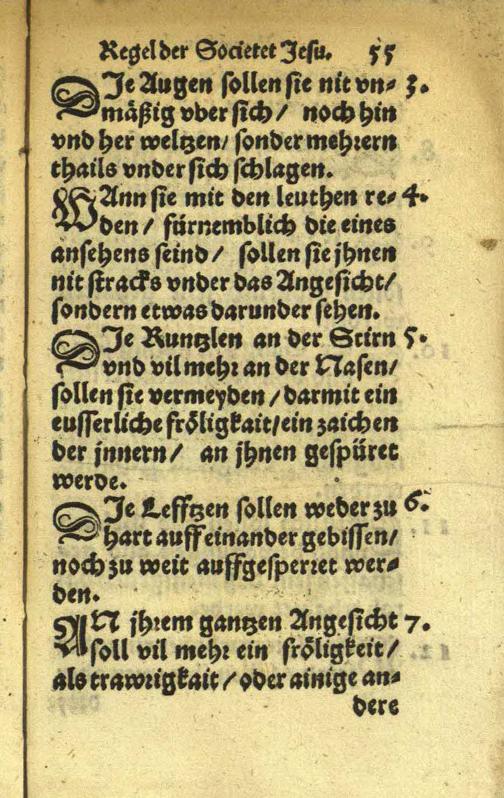 Regel der Societet Jesu. 55
DJe Augen sollen sie nit vn⸗ 3.
mäßig vber sich / noch hin
vnd her weltzen / sonder mehrern
thails vnder sich schlagen.
WAnn sie mit den leuthen re⸗ 4.
den / fürnemblich die eines
ansehens seind / sollen sie jhnen
nit stracks vnder das Angesicht /
sondern etwas darunder sehen.
DJe Runtzlen an der Stirn 5.
vnd vil mehr an der Nasen /
sollen sie vermeyden / darmit ein
eusserliche fröligkait / ein zaichen
der jnnern / an jhnen gespüret
werde.
DJe Lefftzen sollen weder zu 6.
hart auff einander gebissen /
noch zu weit auffgesperret wer⸗
den.
AN jhrem gantzen Angesicht 7.
soll vil mehr ein fröligkeit /
als trawrigkait / oder ainige an⸗
dere